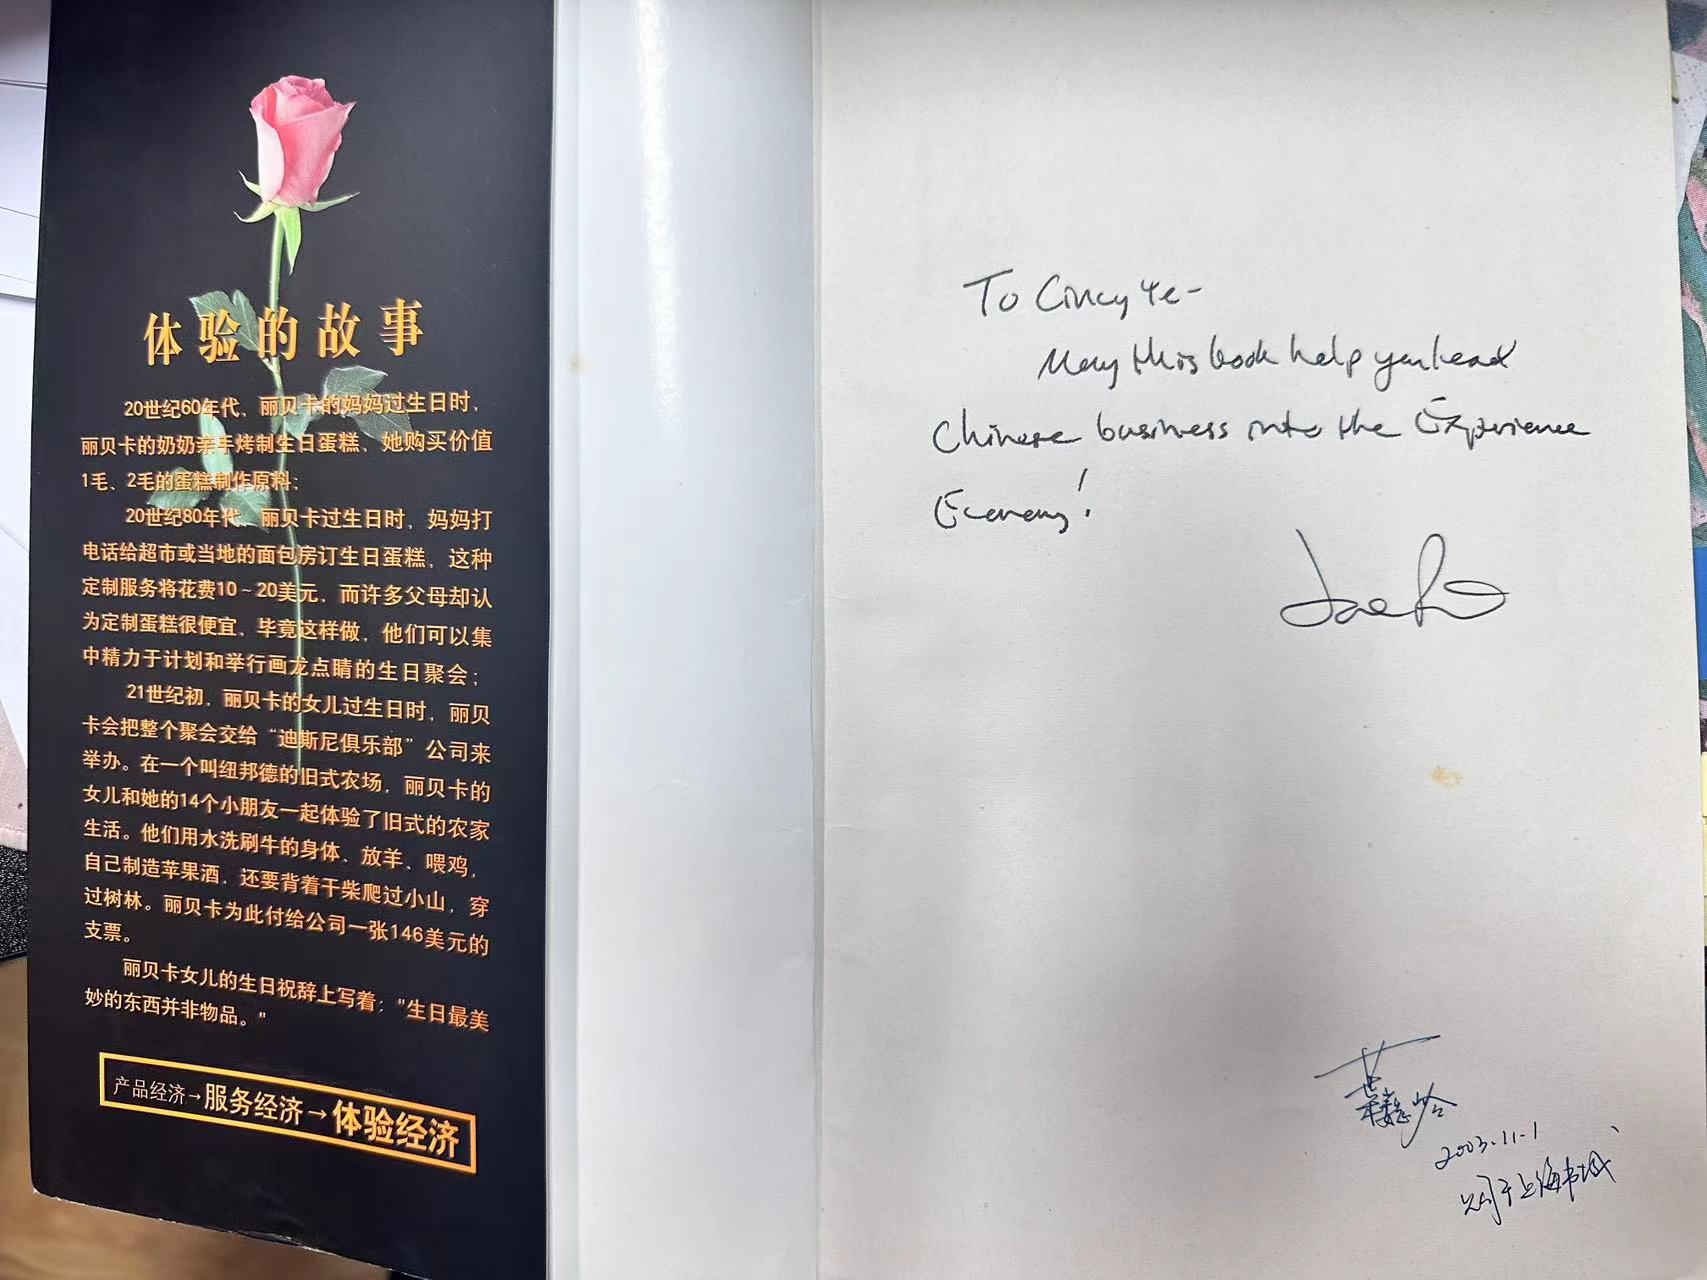 体验的故事
20世纪60年代，丽贝卡的妈妈过生日时，
丽贝卡的奶奶亲手烤制生日蛋糕，她购买价值
1毛、2毛的蛋糕制作原料；
20世纪80年代，丽贝卡过生日时，妈妈打
电话给超市或当地的面包房订生日蛋糕，这种
定制服务将花费10～20美元，而许多父母却认
为定制蛋糕很便宜，毕竟这样做，他们可以集
中精力于计划和举行画龙点睛的生日聚会；
21世纪初，丽贝卡的女儿过生日时，丽贝
卡会把整个聚会交给“迪斯尼俱乐部”公司来
举办。在一个叫纽邦德的旧式农场，丽贝卡的
女儿和她的14个小朋友一起体验了旧式的农家
生活。他们用水洗刷牛的身体、放羊、喂鸡，
自己制造苹果酒，还要背着干柴爬过小山，穿
过树林。丽贝卡为此付给公司一张146美元的
支票。
丽贝卡女儿的生日祝辞上写着："生日最美
妙的东西并非物品。"
产品经济→服务经济→体验经济
To Cincy Ye-
May this book help you lead
Chinese business into the Experience
Economy!
2003.11.1
购于上海书城